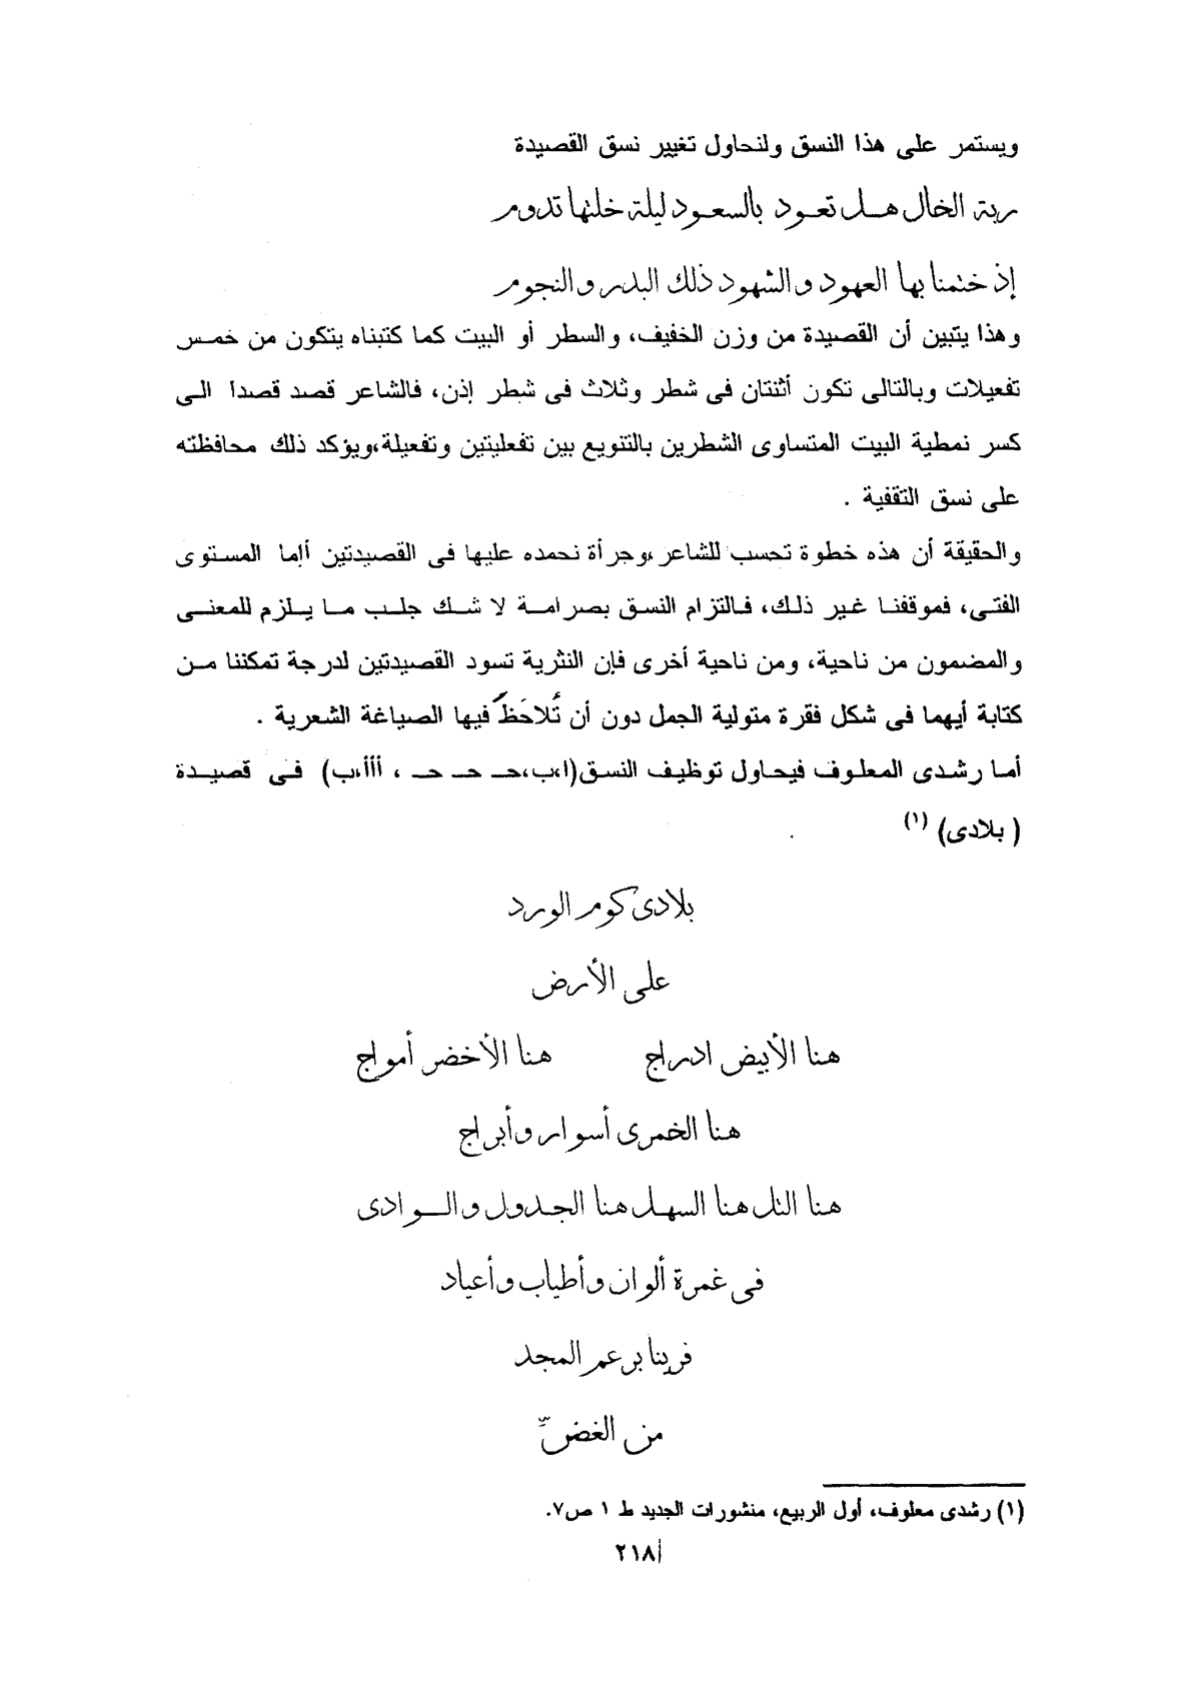 ويستمر على هذا النسق ولنحاول تغيير نسق القصيدة
ربة الخال هـل تعـود بالسعـود ليلة خلتها تدوم
إذ ختمنا بها العهود والشهود ذلك البدر والنجوم
وهذا يتبين أن القصيدة من وزن الخفيف، والسطر أو البيت كما كتبناه يتكون من خمـس
تفعيلات وبالتالى تكون أثنتان فى شطر وثلاث فى شطر إذن، فالشاعر قصد قصدا الـى
كسر نمطية البيت المتساوى الشطرين بالتنويع بين تفعليتين وتفعيلة،ويؤكد ذلك محافظته
على نسق التقفية .
والحقيقة أن هذه خطوة تحسب للشاعر،وجرأة نحمده عليها فى القصيدتين أإما المستوى
الفتى، فموقفنـا غـير ذلـك، فـالتزام النسـق بصرامـة لا شـك جلـب مـا يـلزم للمعنـى
والمضمون من ناحية، ومن ناحية أخرى فإن النثرية تسود القصيدتين لدرجة تمكننا مـن
كتابة أيهما فى شكل فقرة متولية الجمل دون أن تُلاحَظَ فيها الصياغة الشعرية .
أمـا رشـدى المعلـوف فيحـاول توظيـف النسـق(ا،ب،حـ حـ حـ ، أأأ،ب) فـى قصيـدة
( بلادى) (١)
بلادى كوم الورد
على الأرض
هنا الأبيض ادراج هنا الأخضر أمواج
هنا الخمرى أسوار وأبراج
هنا التل هنا السهل هنا الجدول والـوادى
فى غمرة ألوان وأطياب وأعياد
فربنا برعم المجد
من الغضّ
(١) رشدى معلوف، أول الربيع، منشورات الجديد ط ١ ص٧.
٢١٨أ